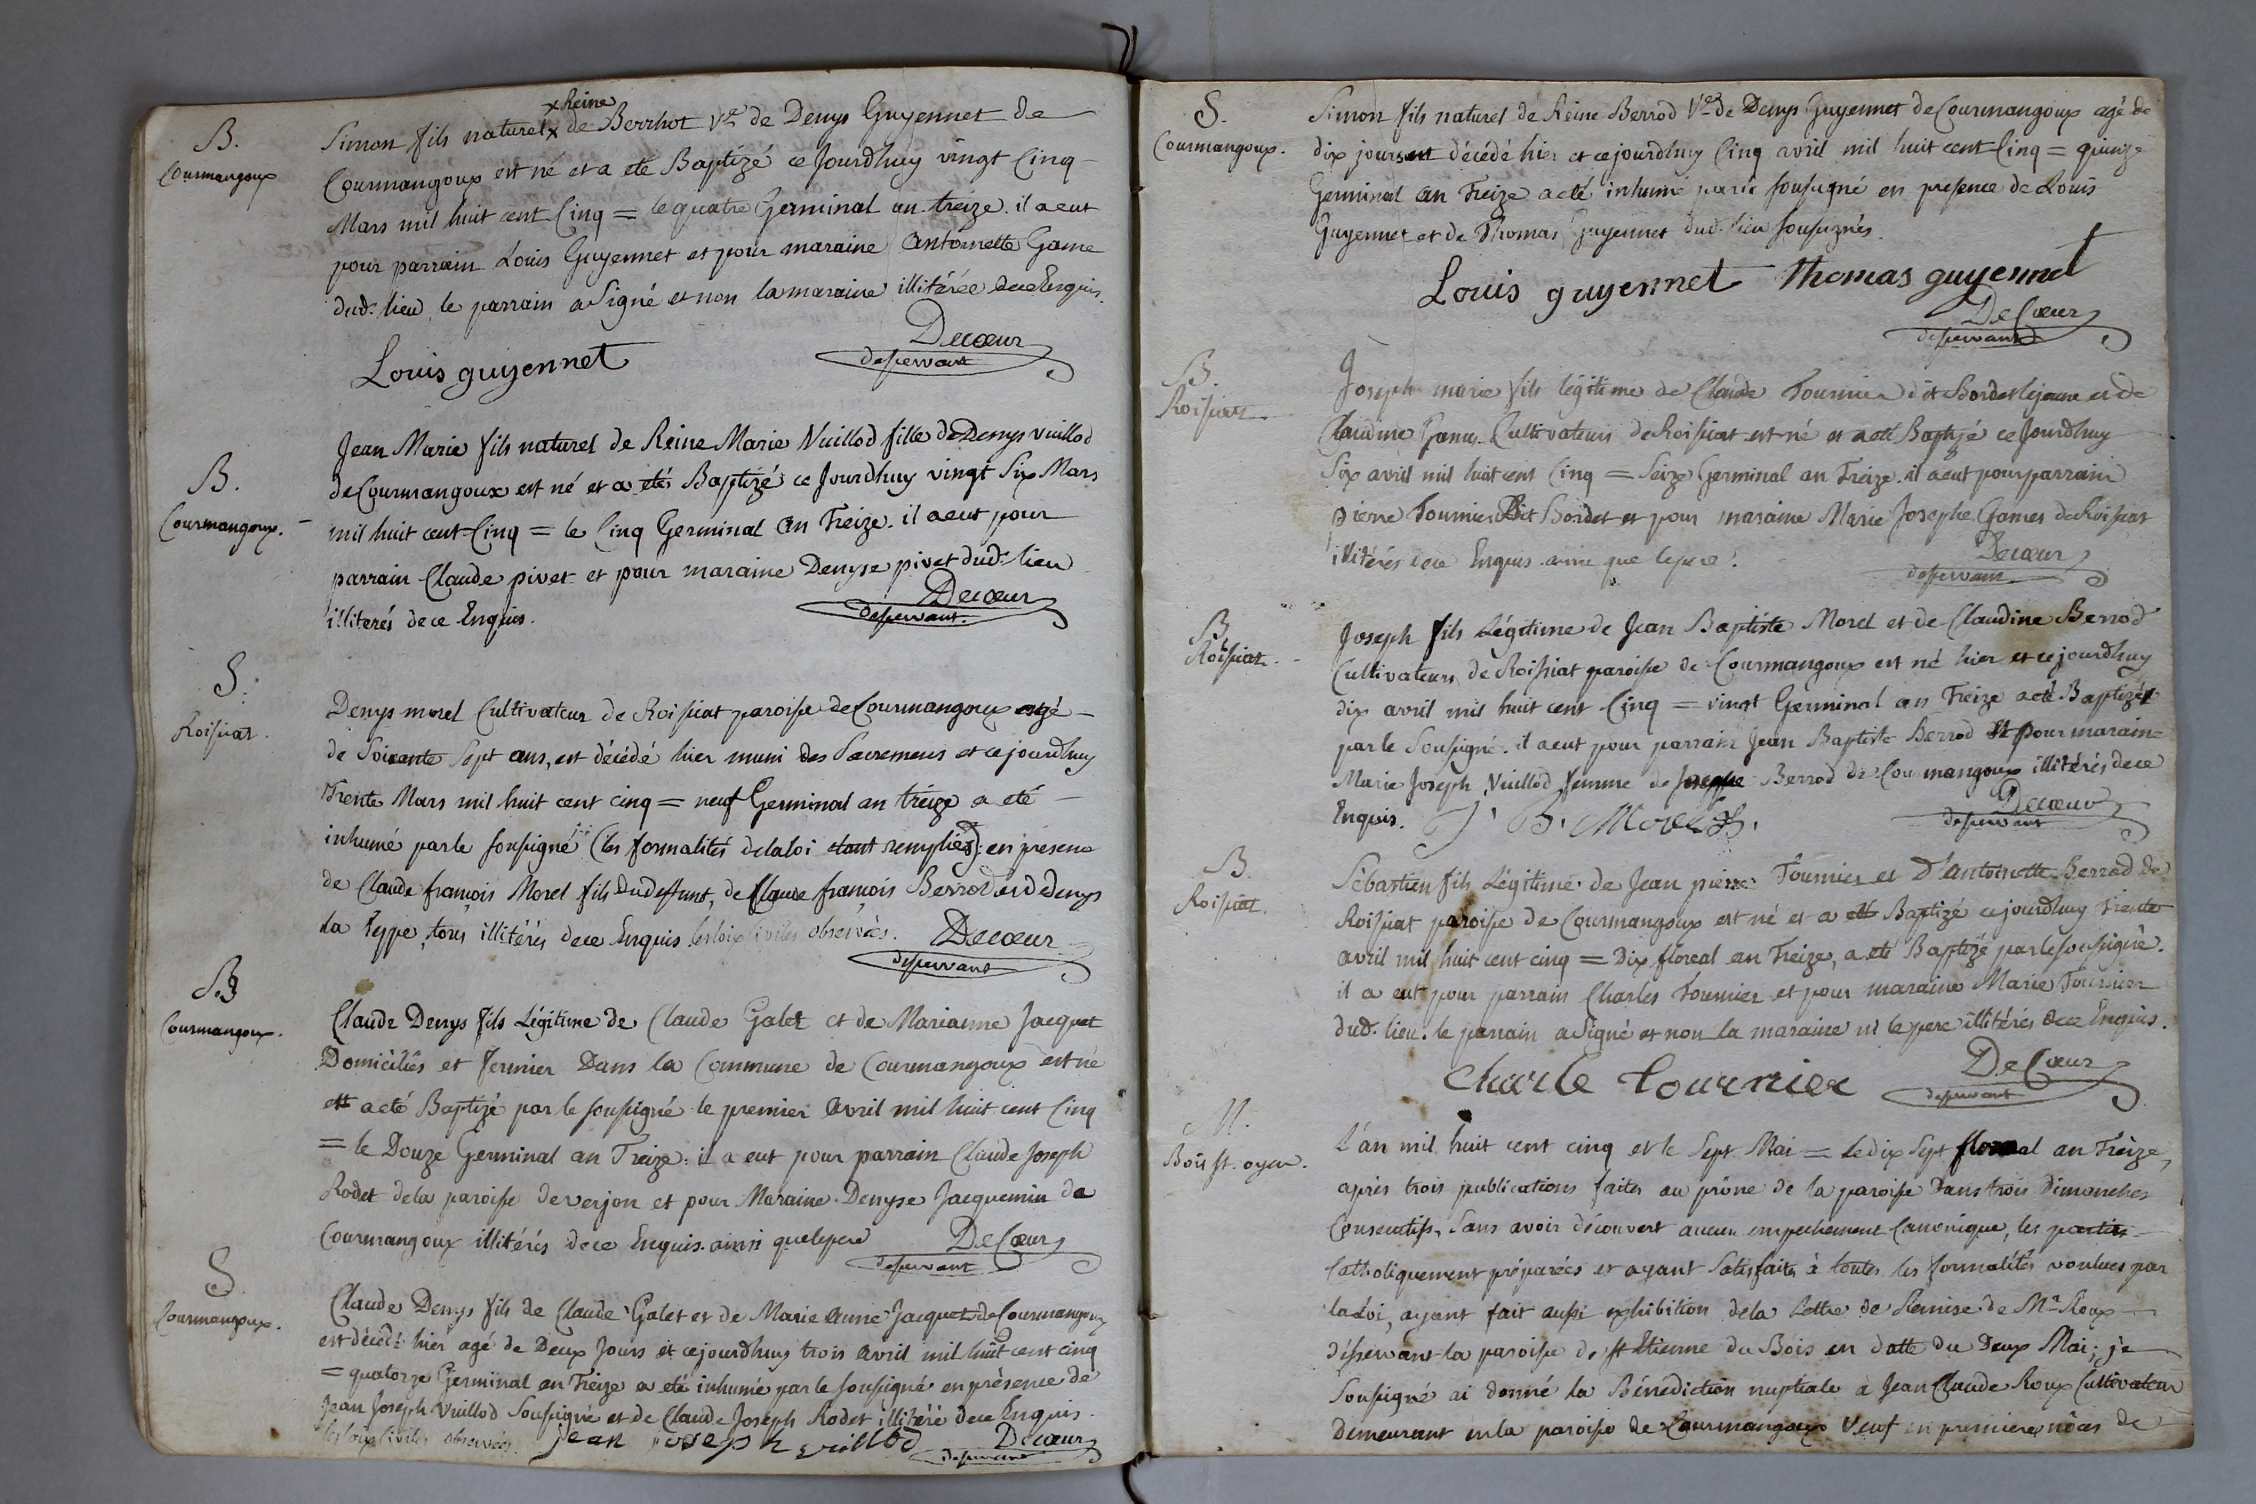 B.
Courmangoux
x Reine
Simon fils naturel x de Berrhot Ve de Denys Guyennet de
Courmangoux est né et a eté Baptizé ce Jourdhuy vingt Cinq
Mars mil huit cent Cinq = le quatre Germinal an treize. il a eut
pour parrain Louis Guyennet et pour maraine Antoinette Game
dud. lieu, le parrain a Signé et non la maraine illitérée dece Enquis.
Decœur
Louis guyennet
desservant
B.
Courmangoux.
Jean Marie fils naturel de Reine Marie Vuillod fille de Denys vuillod
de Courmangoux est né et a eté Baptizé ce Jourdhuy vingt Six Mars
mil huit cent Cinq = le Cinq Germinal An Treize. il a eut pour
parrain Claude pivet et pour maraine Denyse pivet dud. lieu
illiterés de ce Enquis.
Decœur
desservant.
S.
Roissiat.
Denys morel Cultivateur de Roissiat paroisse de Courmangoux agé
de Soixante Sept ans, est décédé hier muni des Sacremens et ce jourdhuy
Trente Mars mil huit cent cinq = neuf Germinal an treize a eté
inhumé par le soussigné (les formalités de la loi étant remplies) en présence
de Claude françois Morel fils du deffunt, de Claude françois Berrod et de Denys
la teppe, tous illitérés dece Enquis les loix civiles observées.
Decœur
desservant
B
Courmangoux.
Claude Denys fils Légitime de Claude Galet et de Marianne Jacquet
Domiciliés et fermier Dans la Commune de Courmangoux est né
et a eté Baptizé par le soussigné le premier Avril mil huit cent Cinq
= le Douze Germinal an Treize. il a eut pour parrain Claude Joseph
Rodet de la paroisse de verjon et pour Maraine Denyse Jacquemin de
Courmangoux illitérés dece Enquis. ainsi que le pere
De Cœur
desservant
S
Courmangoux.
Claude Denys fils de Claude Galet et de Marie Anne Jacquet de Courmangoux
est décédé hier agé de Deux Jours et cejourdhuy trois avril mil huit cent cinq
= quatorze Germinal an Treize a eté inhumé par le soussigné en présence de
Jean Joseph Vuillod Soussigné et de Claude Joseph Rodet illitéré dece Enquis.
les loix civiles observées. jean joseph vuillod Decœur
desservant
S.
Courmangoux.
Simon fils naturel de Reine Berrod Ve de Denys Guyennet de Courmangoux agé de
dix jours est décédé hier et cejourdhuy Cinq avril mil huit cent Cinq = quinze
Germinal An Treize a eté inhumé par le soussigné en presence de Louis
Guyennet et de Thomas Guyennet dud. lieu soussignés.
Louis guyennet Thomas guyennet
De Cœur
desservant
B.
Roissiat
Joseph marie fils légitime de Claude Tournier dit Bordet lejeune et de
Claudine Games Cultivateurs de Roissiat est né et a eté Baptizé ce Jourdhuy
Six avril mil huit cent Cinq = Seize Germinal an Treize. il a eut pour parrain
Pierre Tournier Dit Bordet et pour maraine Marie Josephe Games de Roissiat
illitérés dece Enquis ainsi que le pere.
Decœur
desservant
B
Roissiat.
Joseph fils Légitime de Jean Baptiste Morel et de Claudine Berrod
Cultivateurs de Roissiat paroisse de Courmangoux est né hier et cejourdhuy
dix avril mil huit cent Cinq = vingt Germinal an Treize a eté Baptizé
par le Soussigné. il a eut pour parrain Jean Baptiste Berrod et pour maraine
Marie Joseph Vuillod femme de Joseph Berrod de Courmangoux illitérés dece
Enquis. J. B. Morel
Decœur
desservant
B.
Roissiat.
Sébastien fils Légitime de Jean pierre Tournier et D'antoinette Berrod de
Roissiat paroisse de Courmangoux est né et a eté Baptizé cejourdhuy Trente
avril mil huit cent cinq = Dix floreal an Treize, a eté Baptizé par le soussigné.
il a eut pour parrain Charles Tournier et pour maraine Marie Tournier
dud. lieu. le parrain a Signé et non la maraine ni le pere illitérés dece Enquis.
Charle tournier
De Cœur
desservant
M.
Bois st. oyen.
L'an mil huit cent cinq et le Sept Mai = Le dix Sept floreal an Treize,
après trois publications faites au prône de la paroisse Dans trois Dimanches
Consecutifs, Sans avoir découvert aucun empechement Canonique, les parties
Catholiquement préparées et ayant Satisfaites à toutes les formalités voulues par
la Loi, ayant fait aussi exhibition de la Lettre de Remise de Mr Roux
désservant la paroisse de st Etienne du Bois en datte du Deux Mai; je
Soussigné ai donné la Bénédiction nuptiale à Jean Claude Roux Cultivateur
Demeurant en la paroisse de Courmangoux Veuf en premieres nôces de